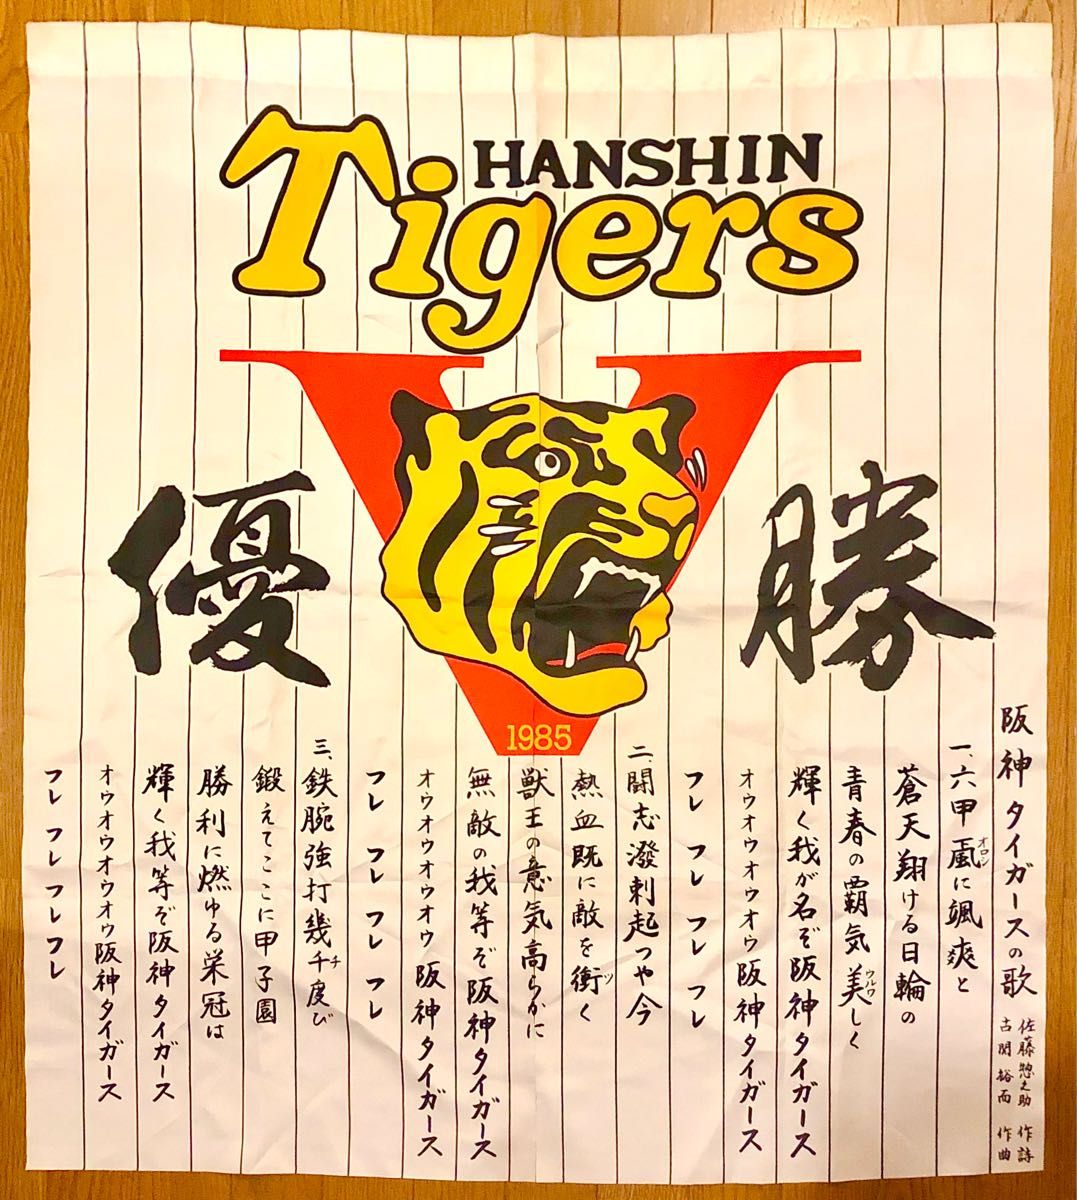 HANSHIN
Tigers
優 勝
1985
阪神タイガースの歌
佐藤惣之助 作詩
古関裕而 作曲
一、六甲颪に颯爽と
オロシ
蒼天翔ける日輪の
青春の覇気美しく
ウルワ
輝く我が名ぞ阪神タイガース
オウオウオウオウ阪神タイガース
フレ フレ フレ フレ
二、闘志潑剌起つや今
熱血既に敵を衝く
ツ
獣王の意気高らかに
無敵の我等ぞ阪神タイガース
オウオウオウオウ阪神タイガース
フレ フレ フレ フレ
三、鉄腕強打幾千度び
チ
鍛えてここに甲子園
勝利に燃ゆる栄冠は
輝く我等ぞ阪神タイガース
オウオウオウオウ阪神タイガース
フレ フレ フレ フレ